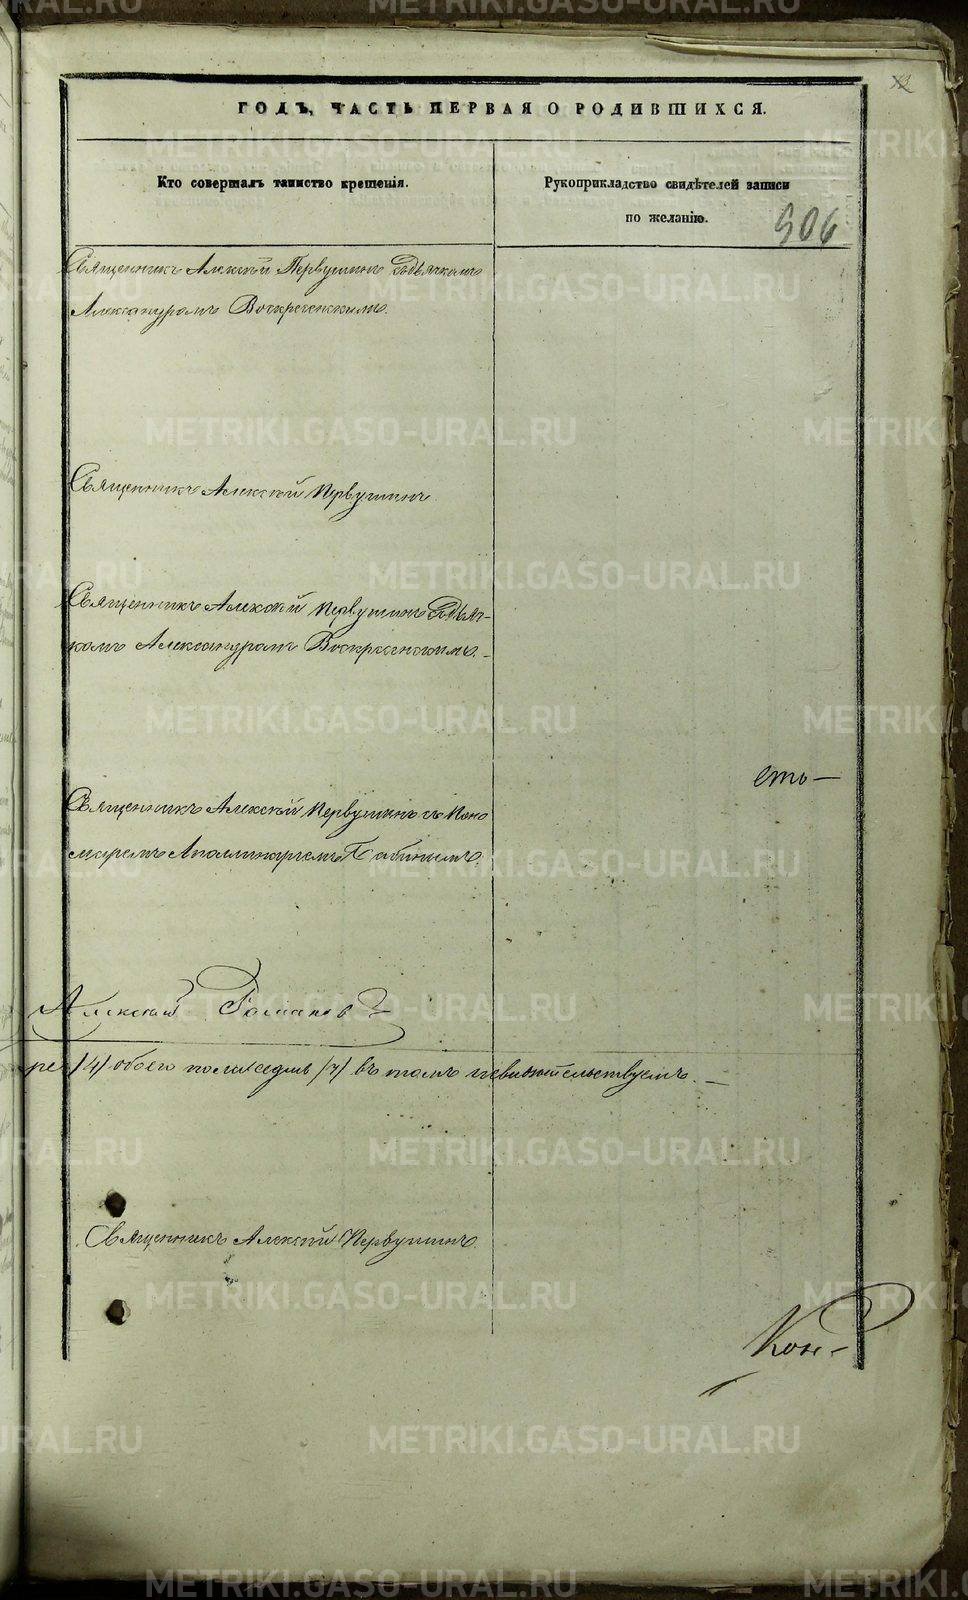 ГОДЪ, ЧАСТЬ ПЕРВАЯ О РОДИВШИХСЯ.
Кто совершалъ таинство крещенія.
Рукоприкладство свидѣтелей записи
по желанію.
906
Священникъ Алексѣй Первушинъ съ дьячкомъ
Александромъ Воскресенскимъ.
Священникъ Алексѣй Первушинъ
Священникъ Алексѣй Первушинъ съ дьяч-
комъ Александромъ Воскресенскимъ.
сто
Священникъ Алексѣй Первушинъ съ Поно
маремъ Аполлинаріемъ Бабинымъ.
Алексѣй Романовъ
ре /4/ обоего пола седмь /7/ въ томъ и свидѣтельствуемъ.
Священникъ Алексѣй Первушинъ.
Кон-
METRIKI.GASO-URAL.RU